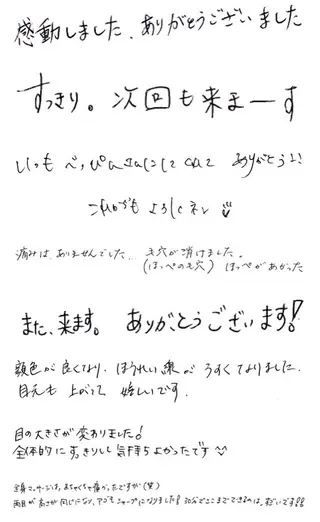 感動しました、ありがとうございました
すっきり。次回も来まーす
いつも べっぴんさんにしてくれて ありがとう!!
これからも よろしくネ
痛みは、ありませんでした。毛穴が消けました。
(ほっぺの毛穴) ほっぺがあがった
また、来ます。ありがとうございます!
顔色が良くなり、ほうれい線が うすくなりました。
目元も 上がって 嬉しいです。
目の大きさが変わりました!
全体的にすっきりし 気持ちよかったです
全身マッサージは、めちゃくちゃ痛かったですが(笑)
両目が高さが同じになり、アゴもシャープになりました! 30分でここまでできるのは、すごいです!!